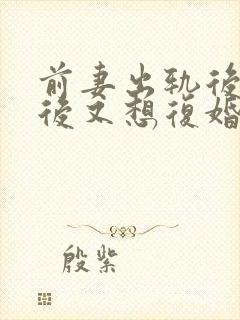 前妻出轨後
後又想復婚
殷紫